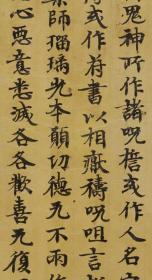 鬼神所作諸呪誓或作人名字
或作符書以相猒禱呪咀言說
藥師瑠璃光本願功德无不兩作
心惡意悉滅各各歡喜无復